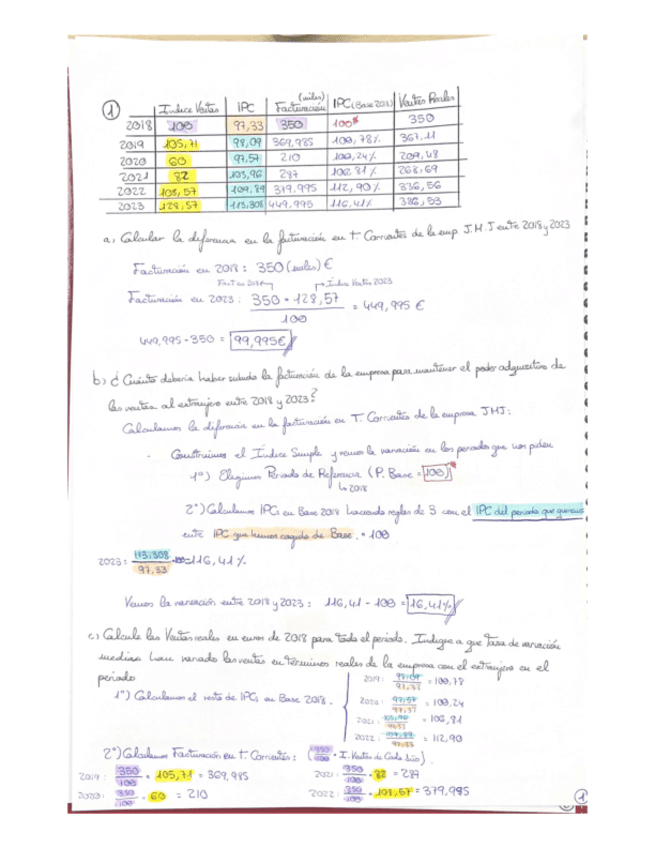 1
Indice Ventas IPC (miles) Facturación IPC (Base 2018) Ventas Reales
2018 100 97,33 350 100 350
2019 105,71 98,09 369,985 100,78% 367,11
2020 60 97,57 210 100,24% 209,48
2021 82 103,96 287 106,81% 268,69
2022 109,89 112,90% 336,56
2023 128,57 113,308 449,995 116,41% 386,53
a) Calcular la diferencia en la facturación en t. Corrientes de la emp. J.M.J entre 2018 y 2023
Facturación en 2018: 350 (miles) €
Fact en 2018 Índice Ventas 2023
Facturación en 2023: 350 · 128,57 = 449,995 €
100
449,995 - 350 = 99,995€
b) ¿Cuánto debería haber subido la facturación de la empresa para mantener el poder adquisitivo de
las ventas al extranjero entre 2018 y 2023?
Calculamos la diferencia en la facturación en T. Corrientes de la empresa JMJ:
- Construimos el Índice Simple y vemos la variación en los periodos que nos piden
1º) Elegimos Periodo de Referencia (P. Base = 100)
2018
2º) Calculamos IPCs en Base 2018 haciendo reglas de 3 con el IPC del periodo que queremos
entre IPC que hemos cogido de Base. · 100
2023: 113,308 / 97,33 ·100=116,41%
Vemos la variación entre 2018 y 2023: 116,41 - 100 = 16,41%
c) Calcule las Ventas reales en euros de 2018 para todo el periodo. Indique a que tasa de variación
mediana han variado las ventas en términos reales de la empresa con el extranjero en el
periodo
1º) Calculamos el resto de IPCs en Base 2018.
2019: 98,09 / 97,33 = 100,78
2020: 97,57 / 97,33 = 100,24
2021: 103,96 / 97,33 = 106,81
2022: 109,89 / 97,33 = 112,90
2º) Calculamos Facturación en t. Corrientes: (350 / 100 · I. Ventas de Cada Año).
2019: 350 / 100 · 105,71 = 369,985 2021: 350 / 100 · 82 = 287
2020: 350 / 100 · 60 = 210 2022: 350 / 100 · 108,57 = 379,995
1